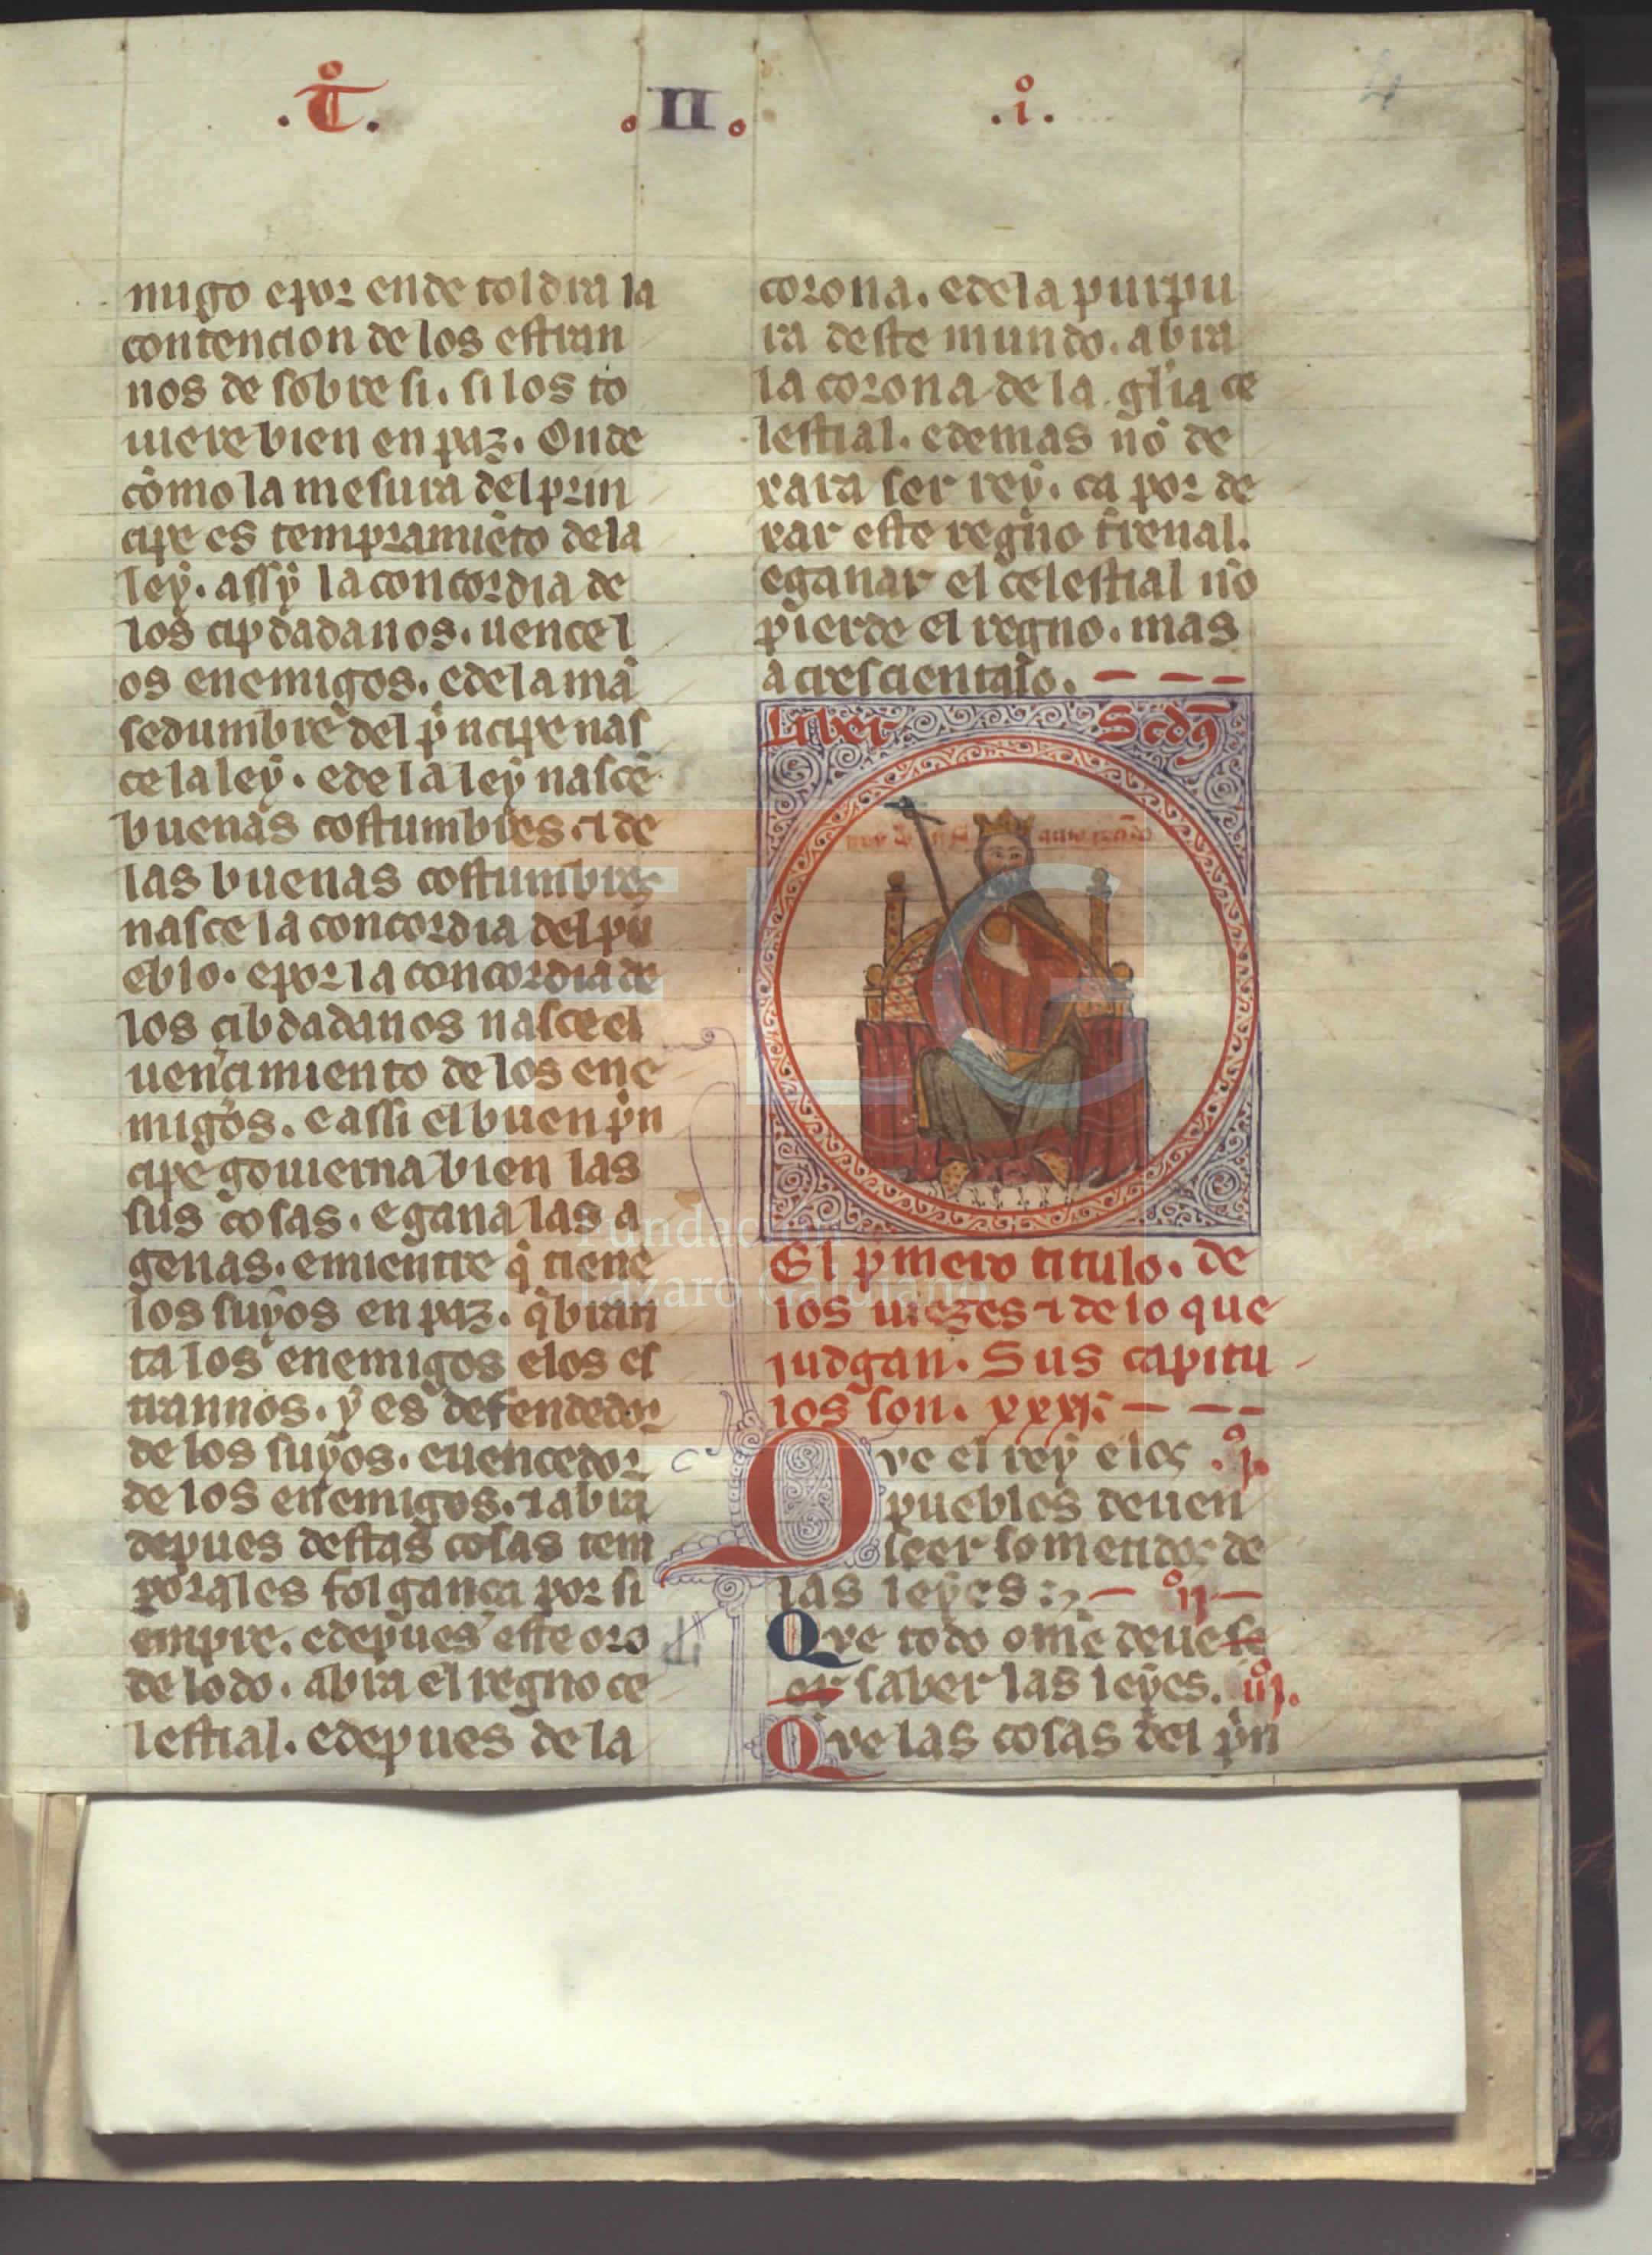 .T̊. .II. .i̊.
4
migo epor ende toldra la
contencion de los estran
nos de sobre si. si los to
uiere bien en paz. Onde
como la mesura del prin
cipe es tempramiẽto dela
ley. assy la concordia de
los cipdadanos. uence l
os enemigos. edela mã
sedumbre del p̃ncipe nas
ce la ley. ede la ley nascẽ
buenas costumbres. ⁊ de
las buenas costumbres
nasce la concordia del pu
eblo. epor la concordia de
los cibdadanos nasce el
uencimiento de los ene
migos. e assi el buen p̃n
cipe gouierna bien las
sus cosas. e gana las a
genas. emientre q̃ tiene
los suyos en paz. q̃bran
ta los enemigos elos es
trannos. y es defendedor
de los suyos. euencedor
de los enemigos. ⁊ abra
depues destas cosas tem
porales folgança por si
empre. edepues este oro
de lodo. abra el regno ce
lestial. edepues de la
corona. edela purpu
ra deste mundo. abra
la corona de la gl̃ia ce
lestial. edemas nõ de
xara ser rey. ca por de
xar este regno t̃renal.
eganar el celestial nõ
pierde el regno. mas
acrescientalo.
Liber Scdꝰ
El p̃mero titulo. de
los iuezes ⁊ de lo que
judgan. Sus capitu
los son. xxxj.
Que el rey e los .j̊.
pueblos deuen
seer somentidos de
las leyes: ij̊
Que todo omẽ deue se
er saber las leyes. iij̊.
Que las cosas del p̃n
Fundación
Lázaro Galdiano